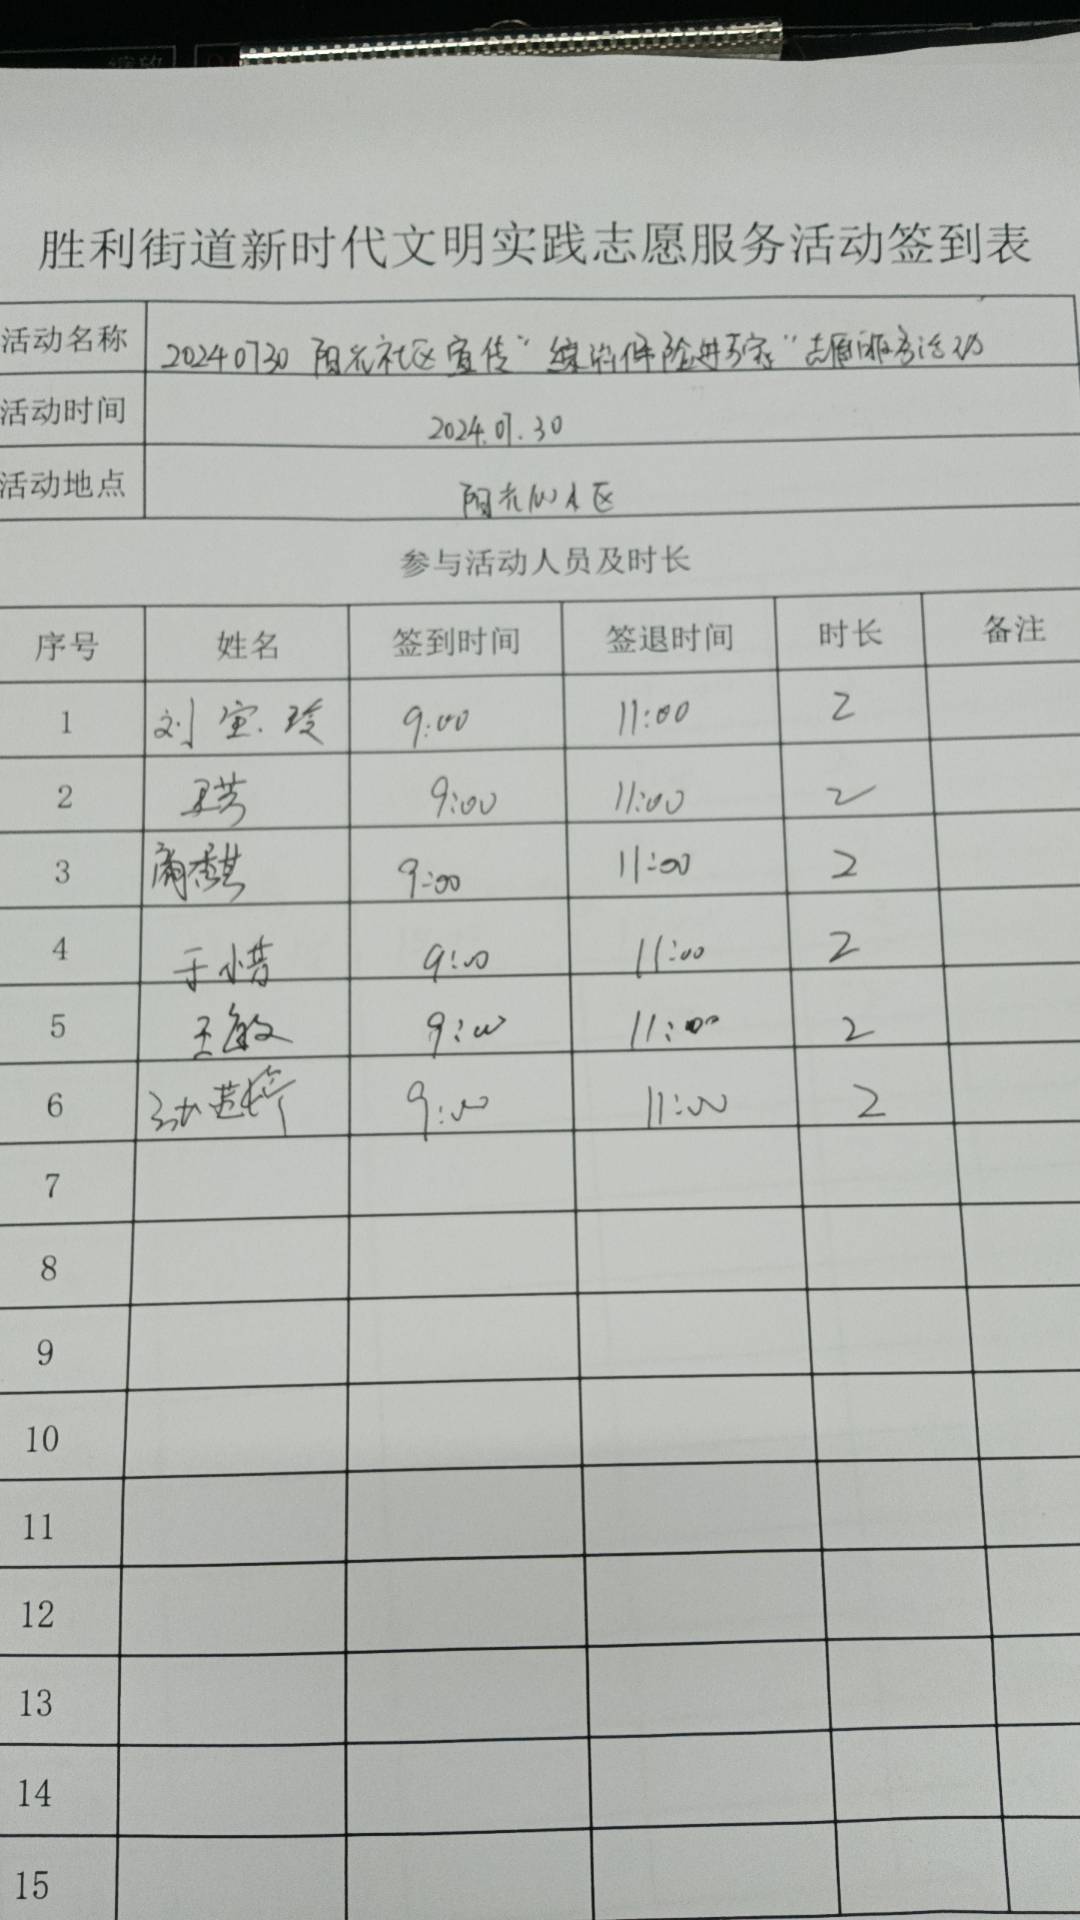 缩放
胜利街道新时代文明实践志愿服务活动签到表
活动名称 20240730 阳光社区宣传“综治保险进万家”志愿服务活动
活动时间 2024.07.30
活动地点 阳光小区
参与活动人员及时长
序号 姓名 签到时间 签退时间 时长 备注
1 刘宝玲 9:00 11:00 2
2 9:00 11:00 2
3 9:00 11:00 2
4 于小惜 9:00 11:00 2
5 王敏 9:00 11:00 2
6 9:00 11:00 2
7
8
9
10
11
12
13
14
15